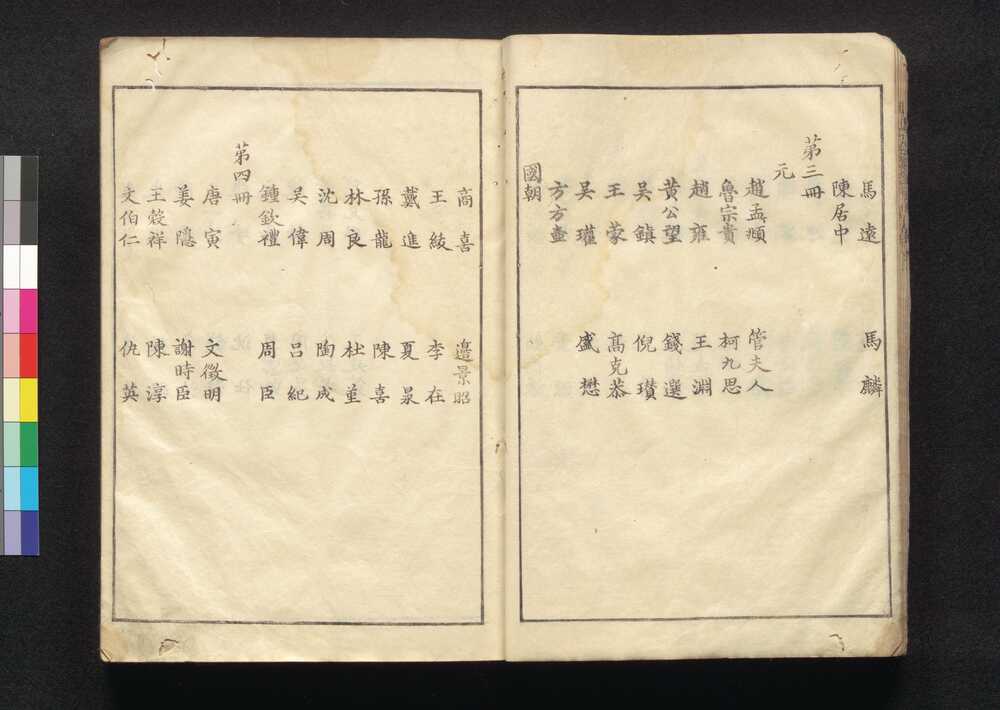 馬遠 馬麟
陳居中
第三冊
元
趙孟頫 管夫人
魯宗貴 柯九思
趙雍 王淵
黄公望 錢選
吳鎮 倪瓚
王蒙 高克恭
吳瓘 盛懋
方方壷
國朝
商喜 邉景昭
王綾 李在
戴進 夏㫤
孫龍 陳喜
林良 杜堇
沈周 陶成
吴偉 吕紀
鍾欽禮 周臣
第四冊
唐寅 文徴明
姜隱 謝時臣
王榖祥 陳淳
文伯仁 仇英